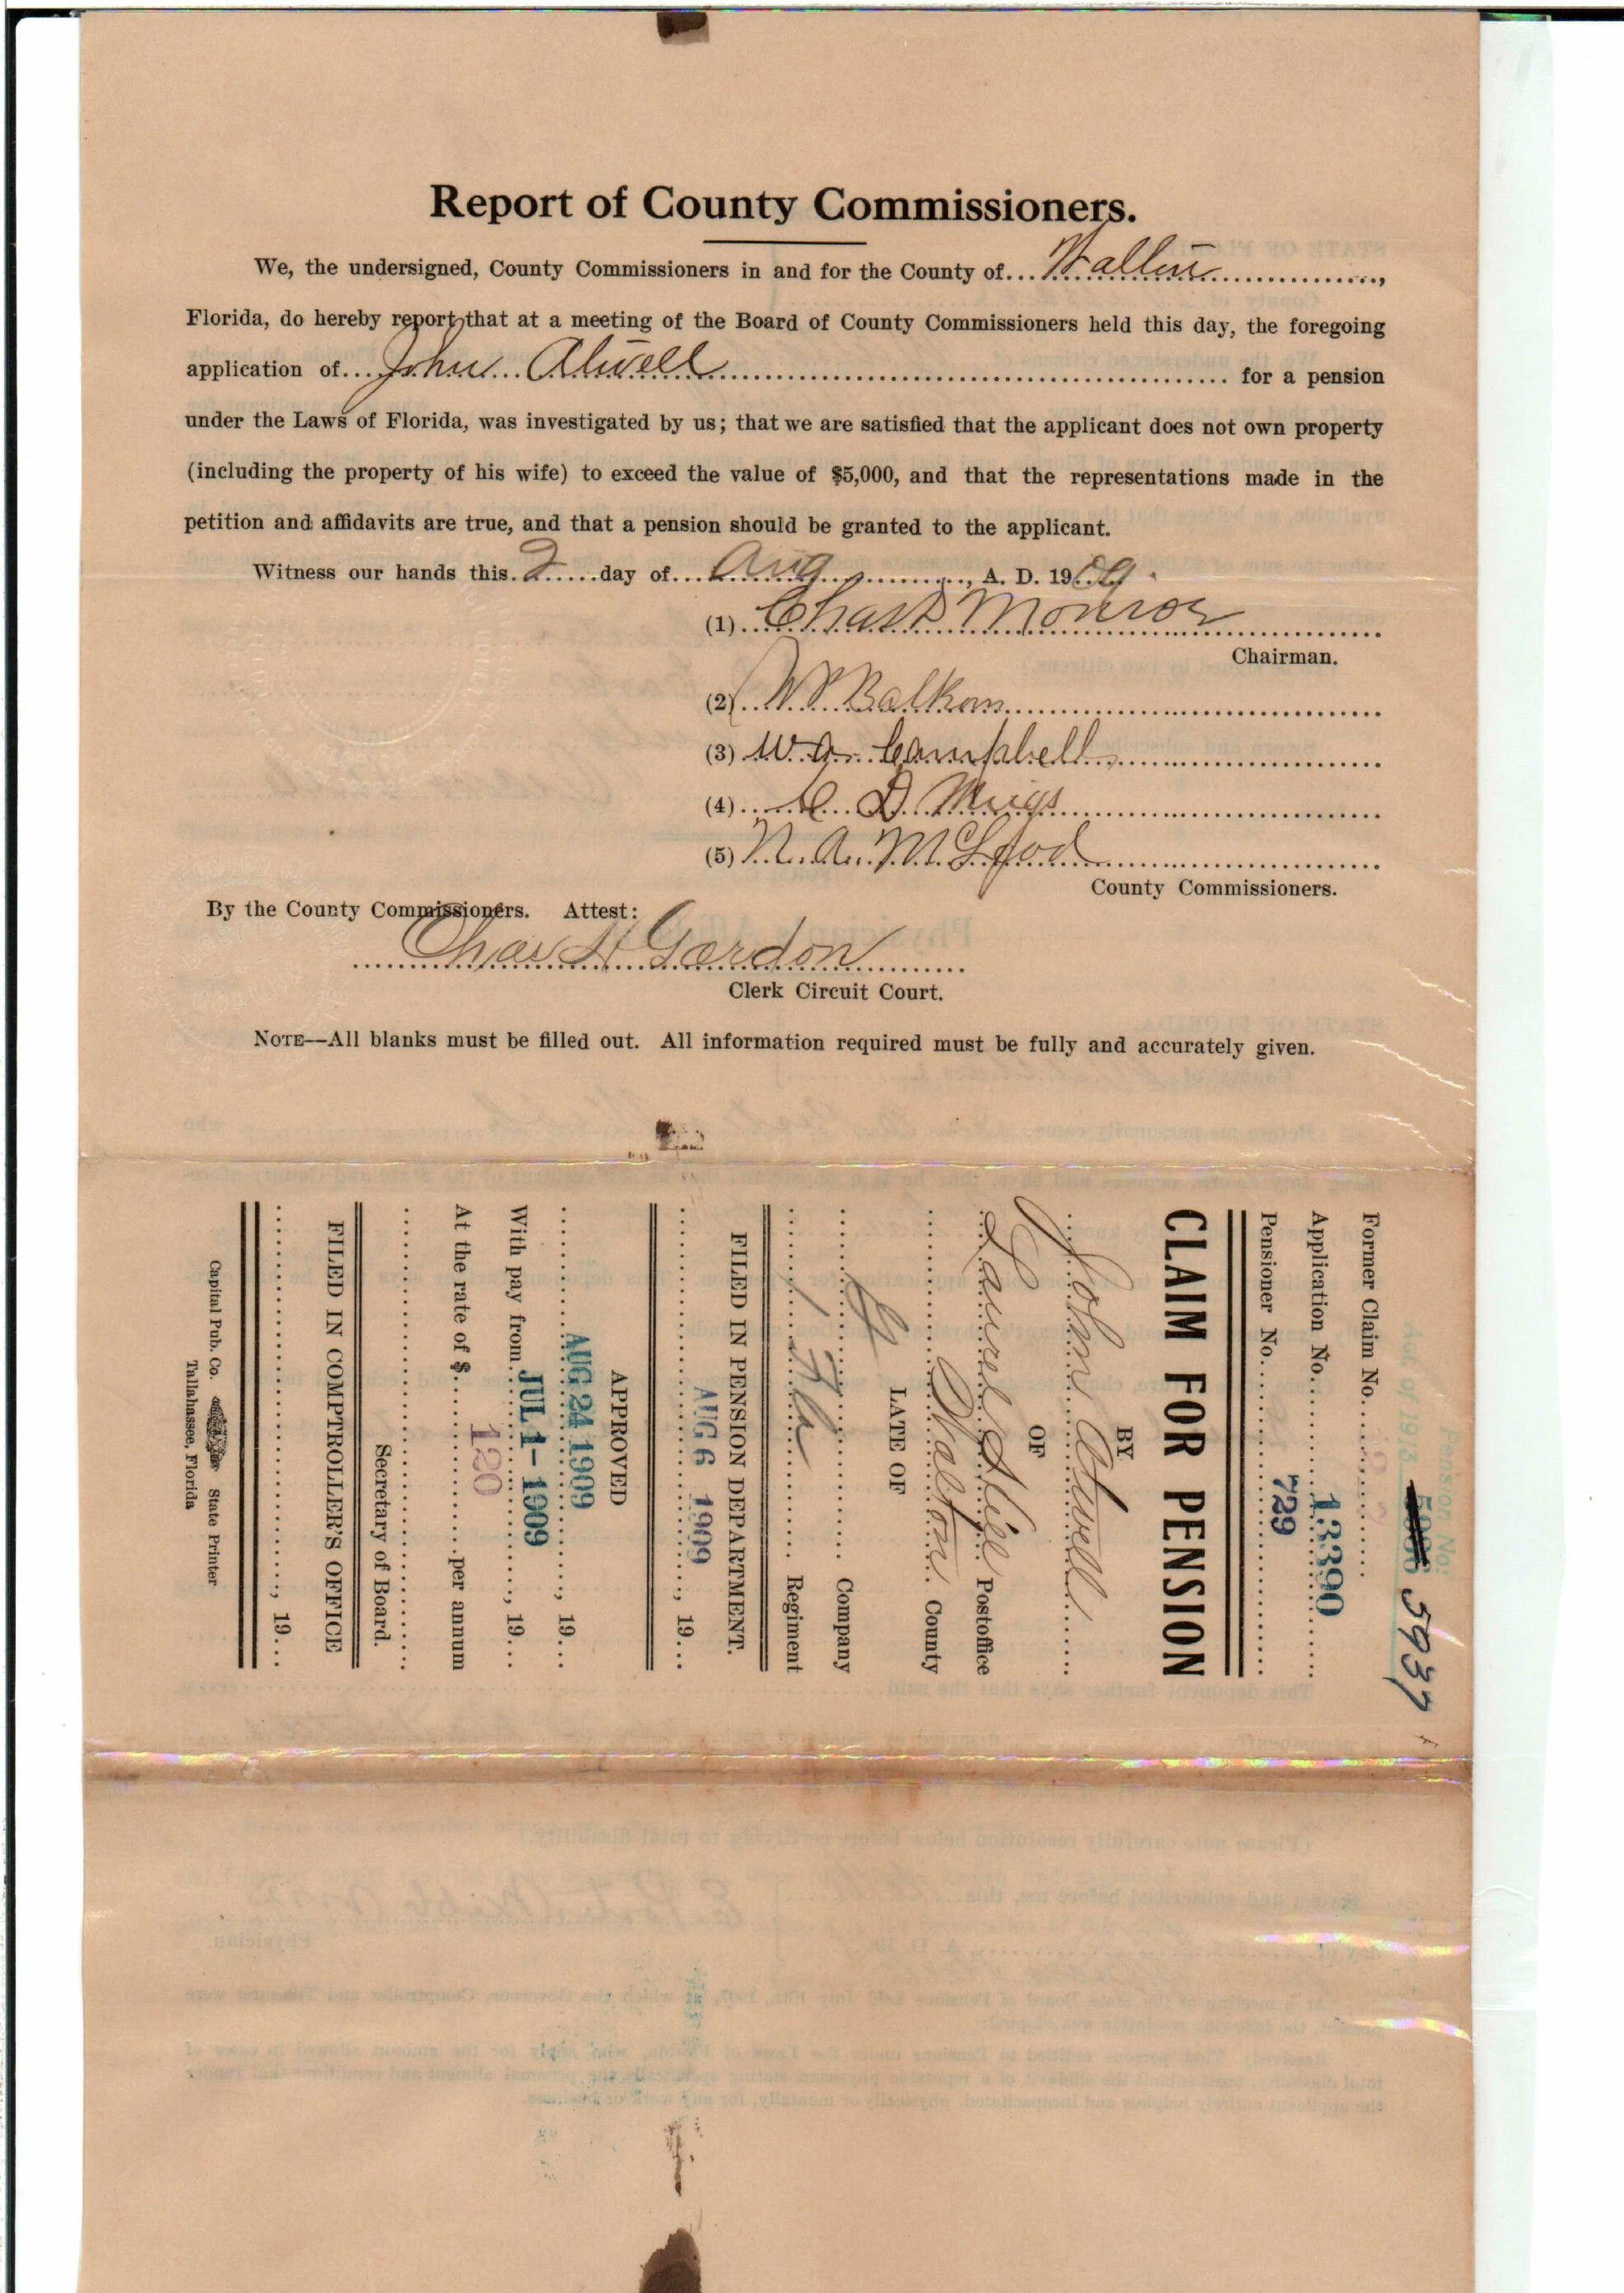 Report of County Commissioners.
We, the undersigned, County Commissioners in and for the County of... Walton ...,
Florida, do hereby report that at a meeting of the Board of County Commissioners held this day, the foregoing
application of... John Atwell ... for a pension
under the Laws of Florida, was investigated by us; that we are satisfied that the applicant does not own property
(including the property of his wife) to exceed the value of $5,000, and that the representations made in the
petition and affidavits are true, and that a pension should be granted to the applicant.
Witness our hands this. 2 .....day of... Aug ..., A. D. 1909.
(1) Chas P Monroe
Chairman.
(2) Balkom
(3) W. A. Campbell
(4) C D Meigs
(5) N. A. McLeod
County Commissioners.
By the County Commissioners. Attest:
Chas H Gordon
Clerk Circuit Court.
NOTE—All blanks must be filled out. All information required must be fully and accurately given.
Pension No.
Act of 1913 5937
Former Claim No.
Application No. 13390
Pensioner No. 729
CLAIM FOR PENSION
BY
John Atwell
OF
Laurel Hill Postoffice
Walton County
LATE OF
G Company
1 Fla Regiment
FILED IN PENSION DEPARTMENT.
AUG 6 1909, 19...
APPROVED
AUG 24 1909, 19...
With pay from JUL 1 - 1909, 19...
At the rate of $ 120 per annum
Secretary of Board.
FILED IN COMPTROLLER'S OFFICE
, 19...
Capital Pub. Co. State Printer
Tallahassee, Florida